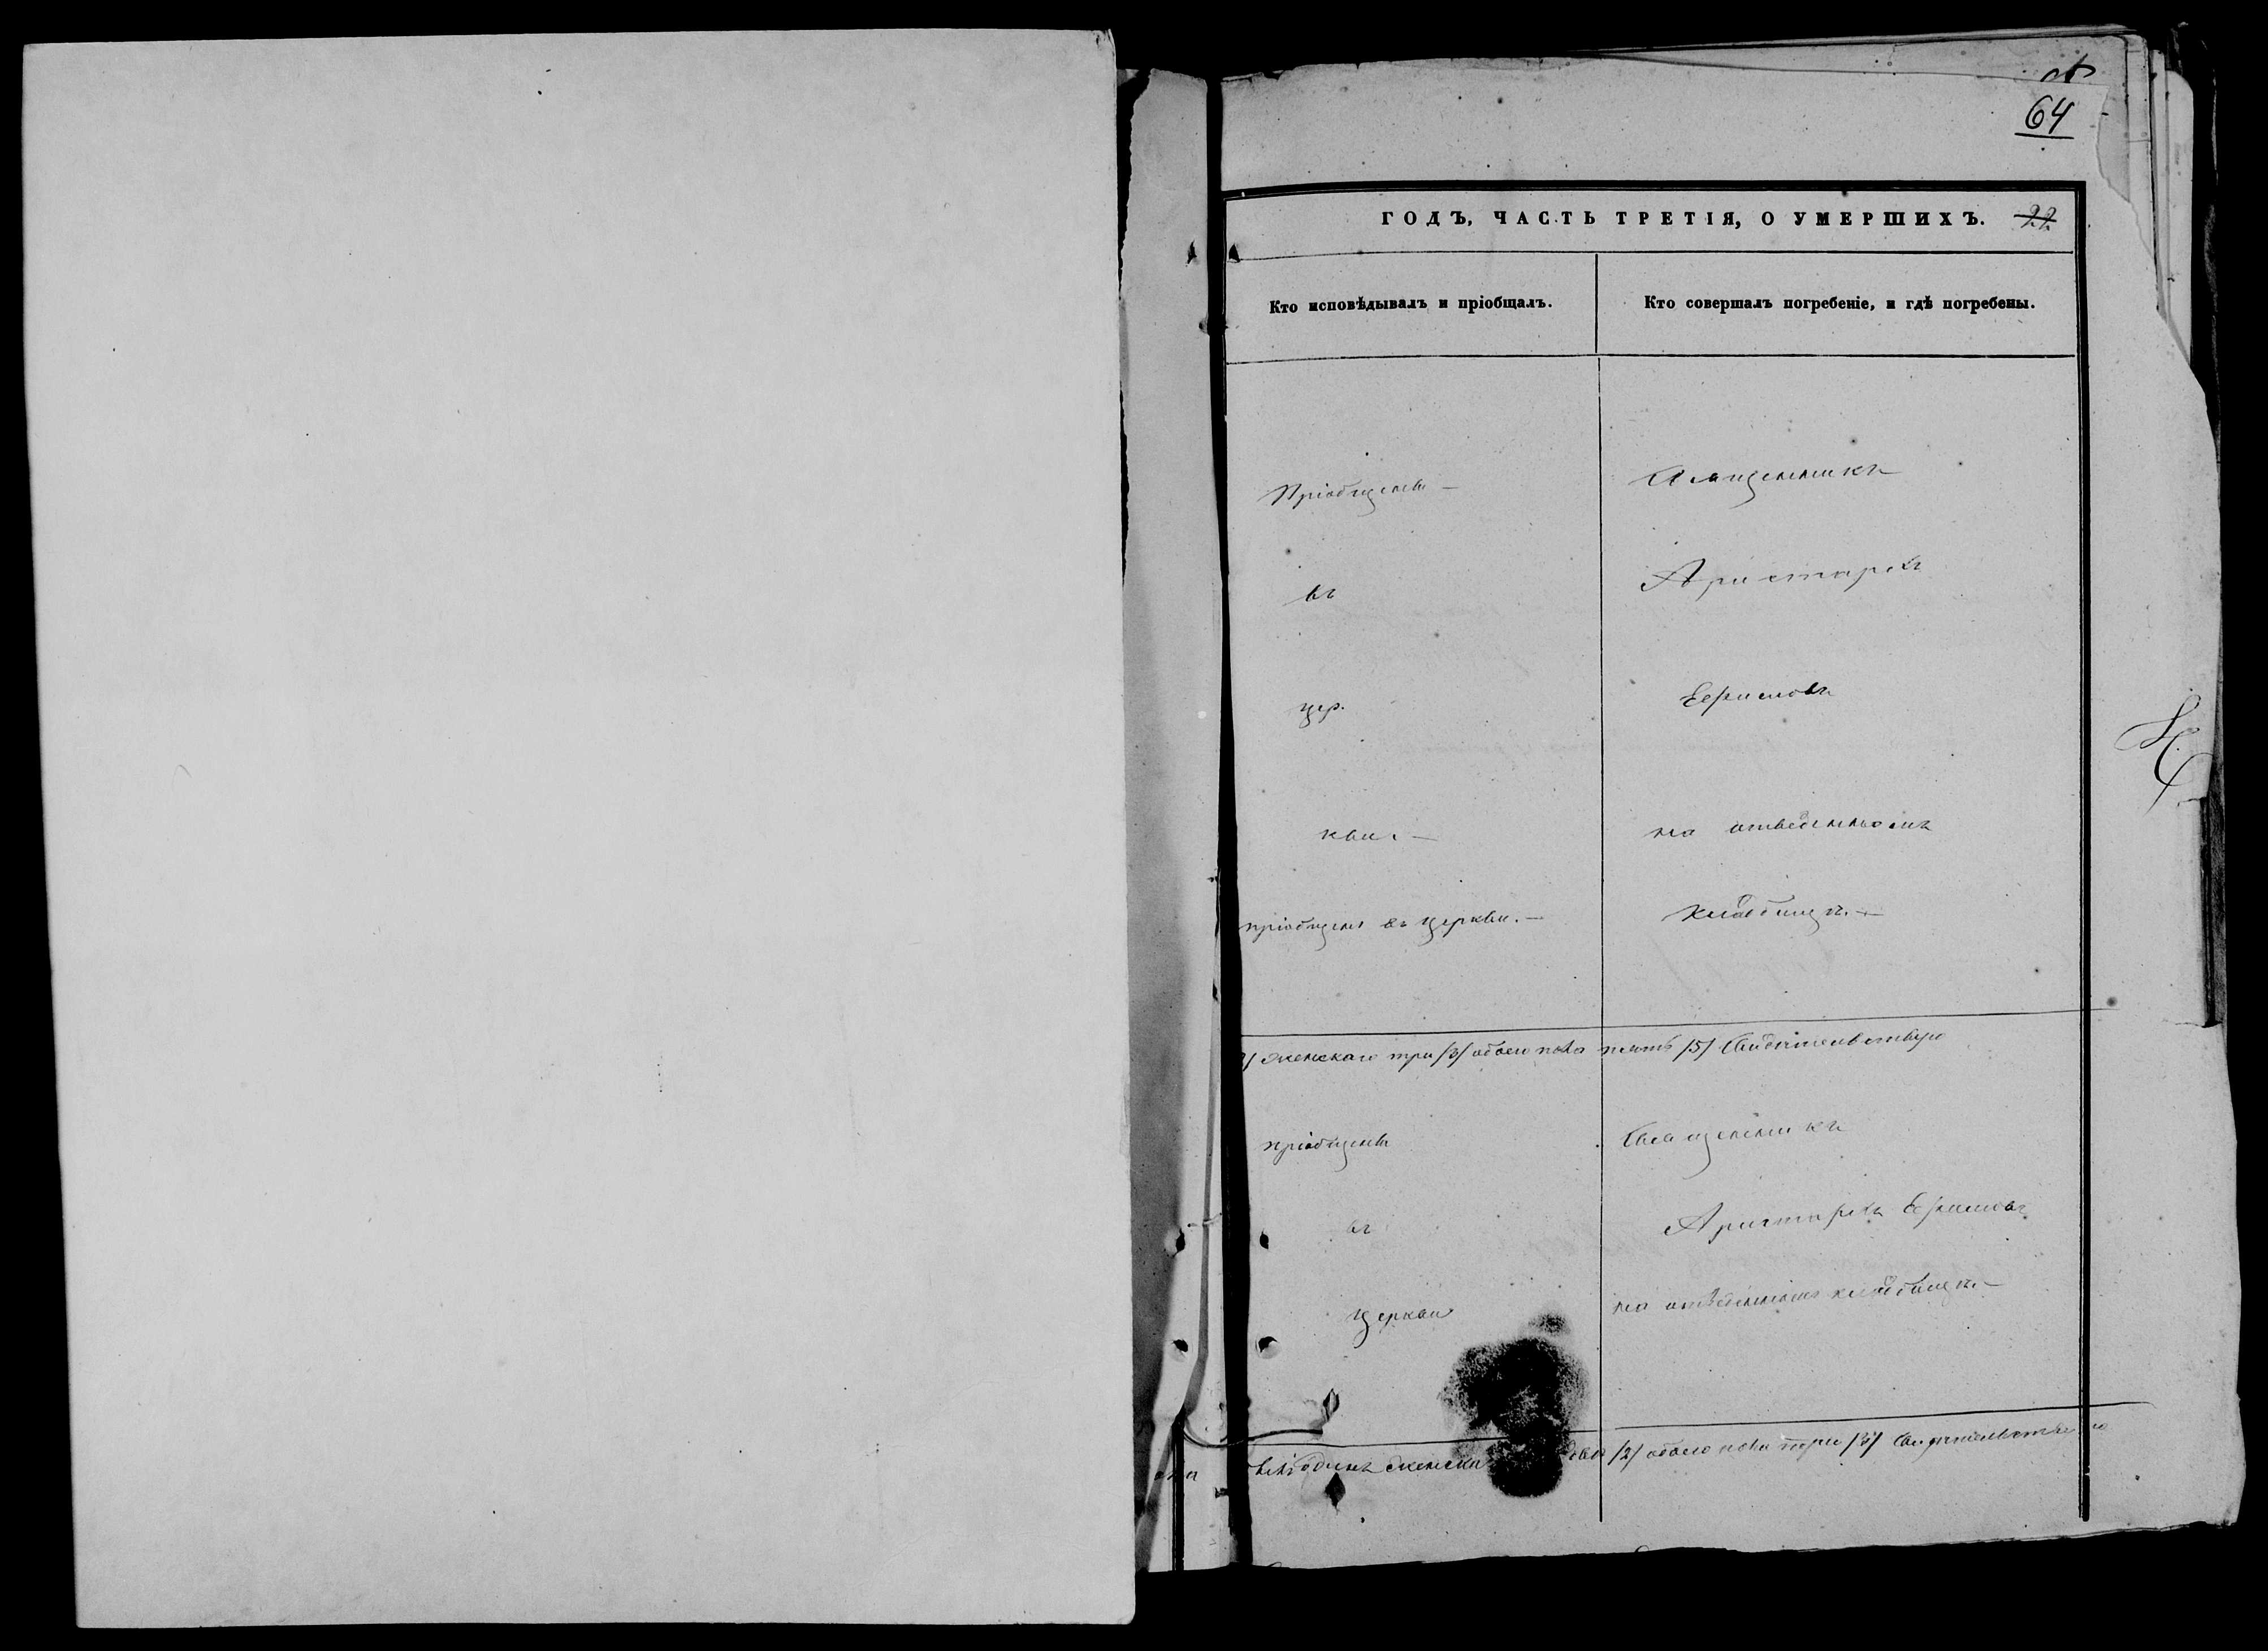 64
ГОДЪ, ЧАСТЬ ТРЕТІЯ, О УМЕРШИХЪ. 22
Кто исповѣдывалъ и пріобщалъ.
Кто совершалъ погребеніе, и гдѣ погребены.
Пріобщены —
въ
цер.
кви. —
пріобщенъ въ церкви. —
Священникъ
Аристархъ
на отведенномъ
кладбищѣ. —
женскаго три /3/ обоего пола пять /5/ Свидѣтельствую
пріобщены
въ
церкви
Священникъ
Аристархъ
на отведенномъ кладбищѣ. —
одинъ женска два /2/ обоего пола три /3/ Свидѣтельствую